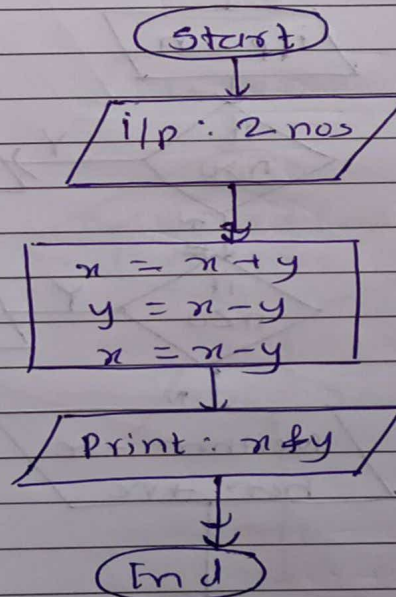 Start
i/p : 2 nos
x = x + y
y = x - y
x = x - y
Print : x & y
End